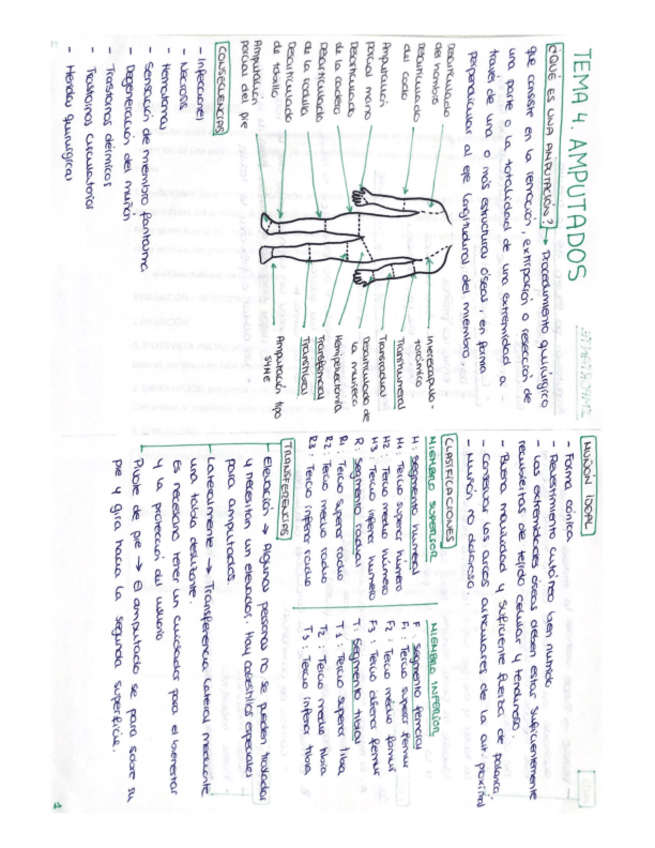 TEMA 4. AMPUTADOS
¿QUÉ ES UNA AMPUTACIÓN? → Procedimiento quirúrgico
que consiste en la remoción, extirpación o resección de
una parte o la totalidad de una extremidad a
través de una o más estructuras óseas, en forma
perpendicular al eje longitudinal del miembro.
Desarticulado
del hombro
Desarticulado
del codo
Amputación
parcial mano
Desarticulado
de la cadera
Desarticulado
de la rodilla
Desarticulado
de tobillo
Amputación
parcial del pie
Interescapulo-
torácmico
Transhumeral
Transradial
Desarticulado de
la muñeca
Hemipelvectomía
Transfemoral
Transtibial
Amputación tipo
SYNE
CONSECUENCIAS
- Infecciones
- Necrosis
- Hematomas
- Sensación de miembro fantasma
- Degeneración del muñón
- Trastornos dérmicos
- Trastornos circulatorios
- Heridas quirúrgicas
MUÑÓN IDEAL
- Forma cónica
- Revestimiento cutáneo bien nutrido
- Las extremidades óseas deben estar suficientemente
recubiertas de tejido celular y tendinoso.
- Buena movilidad y suficiente fuerza de palanca
- Conservar los arcos articulares de la art. proximal
- Muñón no doloroso.
CLASIFICACIONES
MIEMBRO SUPERIOR
H: Segmento humeral
H1: Tercio superior húmero
H2: Tercio medio húmero
H3: Tercio inferior húmero
R: Segmento radial
R1: Tercio superior radio
R2: Tercio medio radio
R3: Tercio inferior radio
MIEMBRO INFERIOR
F: Segmento femoral
F1: Tercio superior femur
F2: Tercio medio femur
F3: Tercio femur
T: Segmento tibial
T1: Tercio superior tibia
T2: Tercio medio tibia
T3: Tercio inferior tibia
TRANSFERENCIAS
Elevación → Algunas personas no se pueden trasladar
y necesitan un elevador. Hay cabestrillos especiales
para amputados.
Lateralmente → Transferencia lateral mediante
una tabla deslizante.
Es necesario tener un cuidador para el bienestar
y la protección del usuario
Pivote de pie → El amputado se para sobre su
pie y gira hacia la segunda superficie.